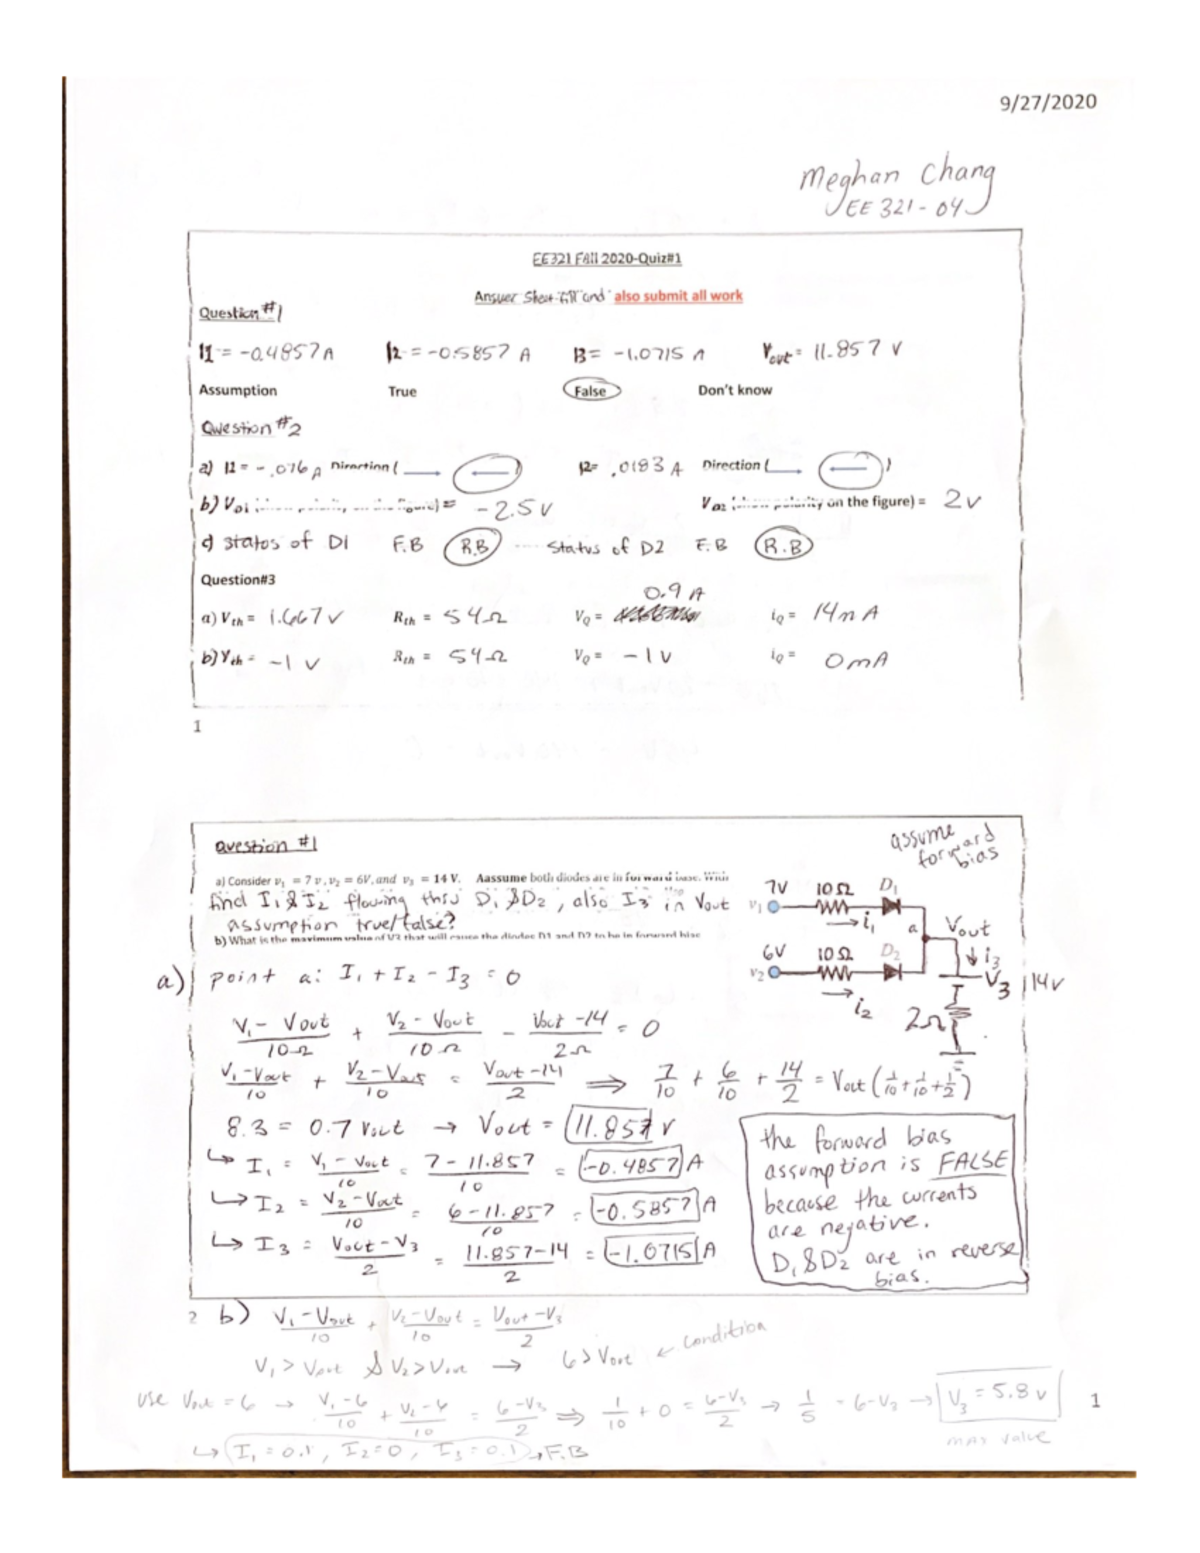 9/27/2020
Meghan Chang
EE 321-04
EE321 Fall 2020-Quiz#1
Answer Sheet-Fill and also submit all work
Question #1
I1 = -0.4857 A I2 = -0.5857 A I3 = -1.0715 A Vout = 11.857 V
Assumption True False Don't know
Question #2
a) I1 = -.076 A Direction ( → ← ) I2= .0183 A Direction ( → ← )
b) VD1 = -2.5V VD2 on the figure) = 2V
c) status of D1 F.B R.B Status of D2 F.B R.B
Question#3
0.9 A
a) Vth = 1.667 V Rth = 54Ω VQ = iQ = 14m A
b) Vth = -1 V Rth = 54Ω VQ = -1V iQ = 0mA
1
Question #1
assume forward bias
a) Consider v1 = 7 v, v2 = 6V, and v3 = 14 V. Aassume both diodes are in forward base.
find I1 & I2 flowing thru D1 & D2, also I3 in Vout
assumption true/false?
b) What is the maximum value of V3 that will cause the diodes D1 and D2 to be in forward bias
7V 10Ω D1
v1 → i1 a Vout
6V 10Ω D2 ↓ i3
v2 → i2 V3 14V
2Ω
a) point a: I1 + I2 - I3 = 0
V1 - Vout / 10Ω + V2 - Vout / 10Ω - Vout - 14 / 2Ω = 0
V1-Vout / 10 + V2-Vout / 10 = Vout-14 / 2 ⇒ 7/10 + 6/10 + 14/2 = Vout (1/10 + 1/10 + 1/2)
8.3 = 0.7 Vout → Vout = 11.857 V
↳ I1 = V1 - Vout / 10 = 7 - 11.857 / 10 = -0.4857 A
↳ I2 = V2 - Vout / 10 = 6 - 11.857 / 10 = -0.5857 A
↳ I3 = Vout - V3 / 2 = 11.857-14 / 2 = -1.0715 A
the forward bias
assumption is FALSE
because the currents
are negative.
D1 & D2 are in reverse
bias.
2 b) V1 - Vout / 10 + V2 - Vout / 10 = Vout - V3 / 2
V1 > Vout & V2 > Vout → 6 > Vout ← condition
use Vout = 6 → V1 - 6 / 10 + V2 - 6 / 10 = 6 - V3 / 2 ⇒ 1/10 + 0 = 6-V3 / 2 → 1/5 = 6-V3 → V3 = 5.8 V 1
max value
↳ I1 = 0.1, I2 = 0, I3 = 0.1 → F.B